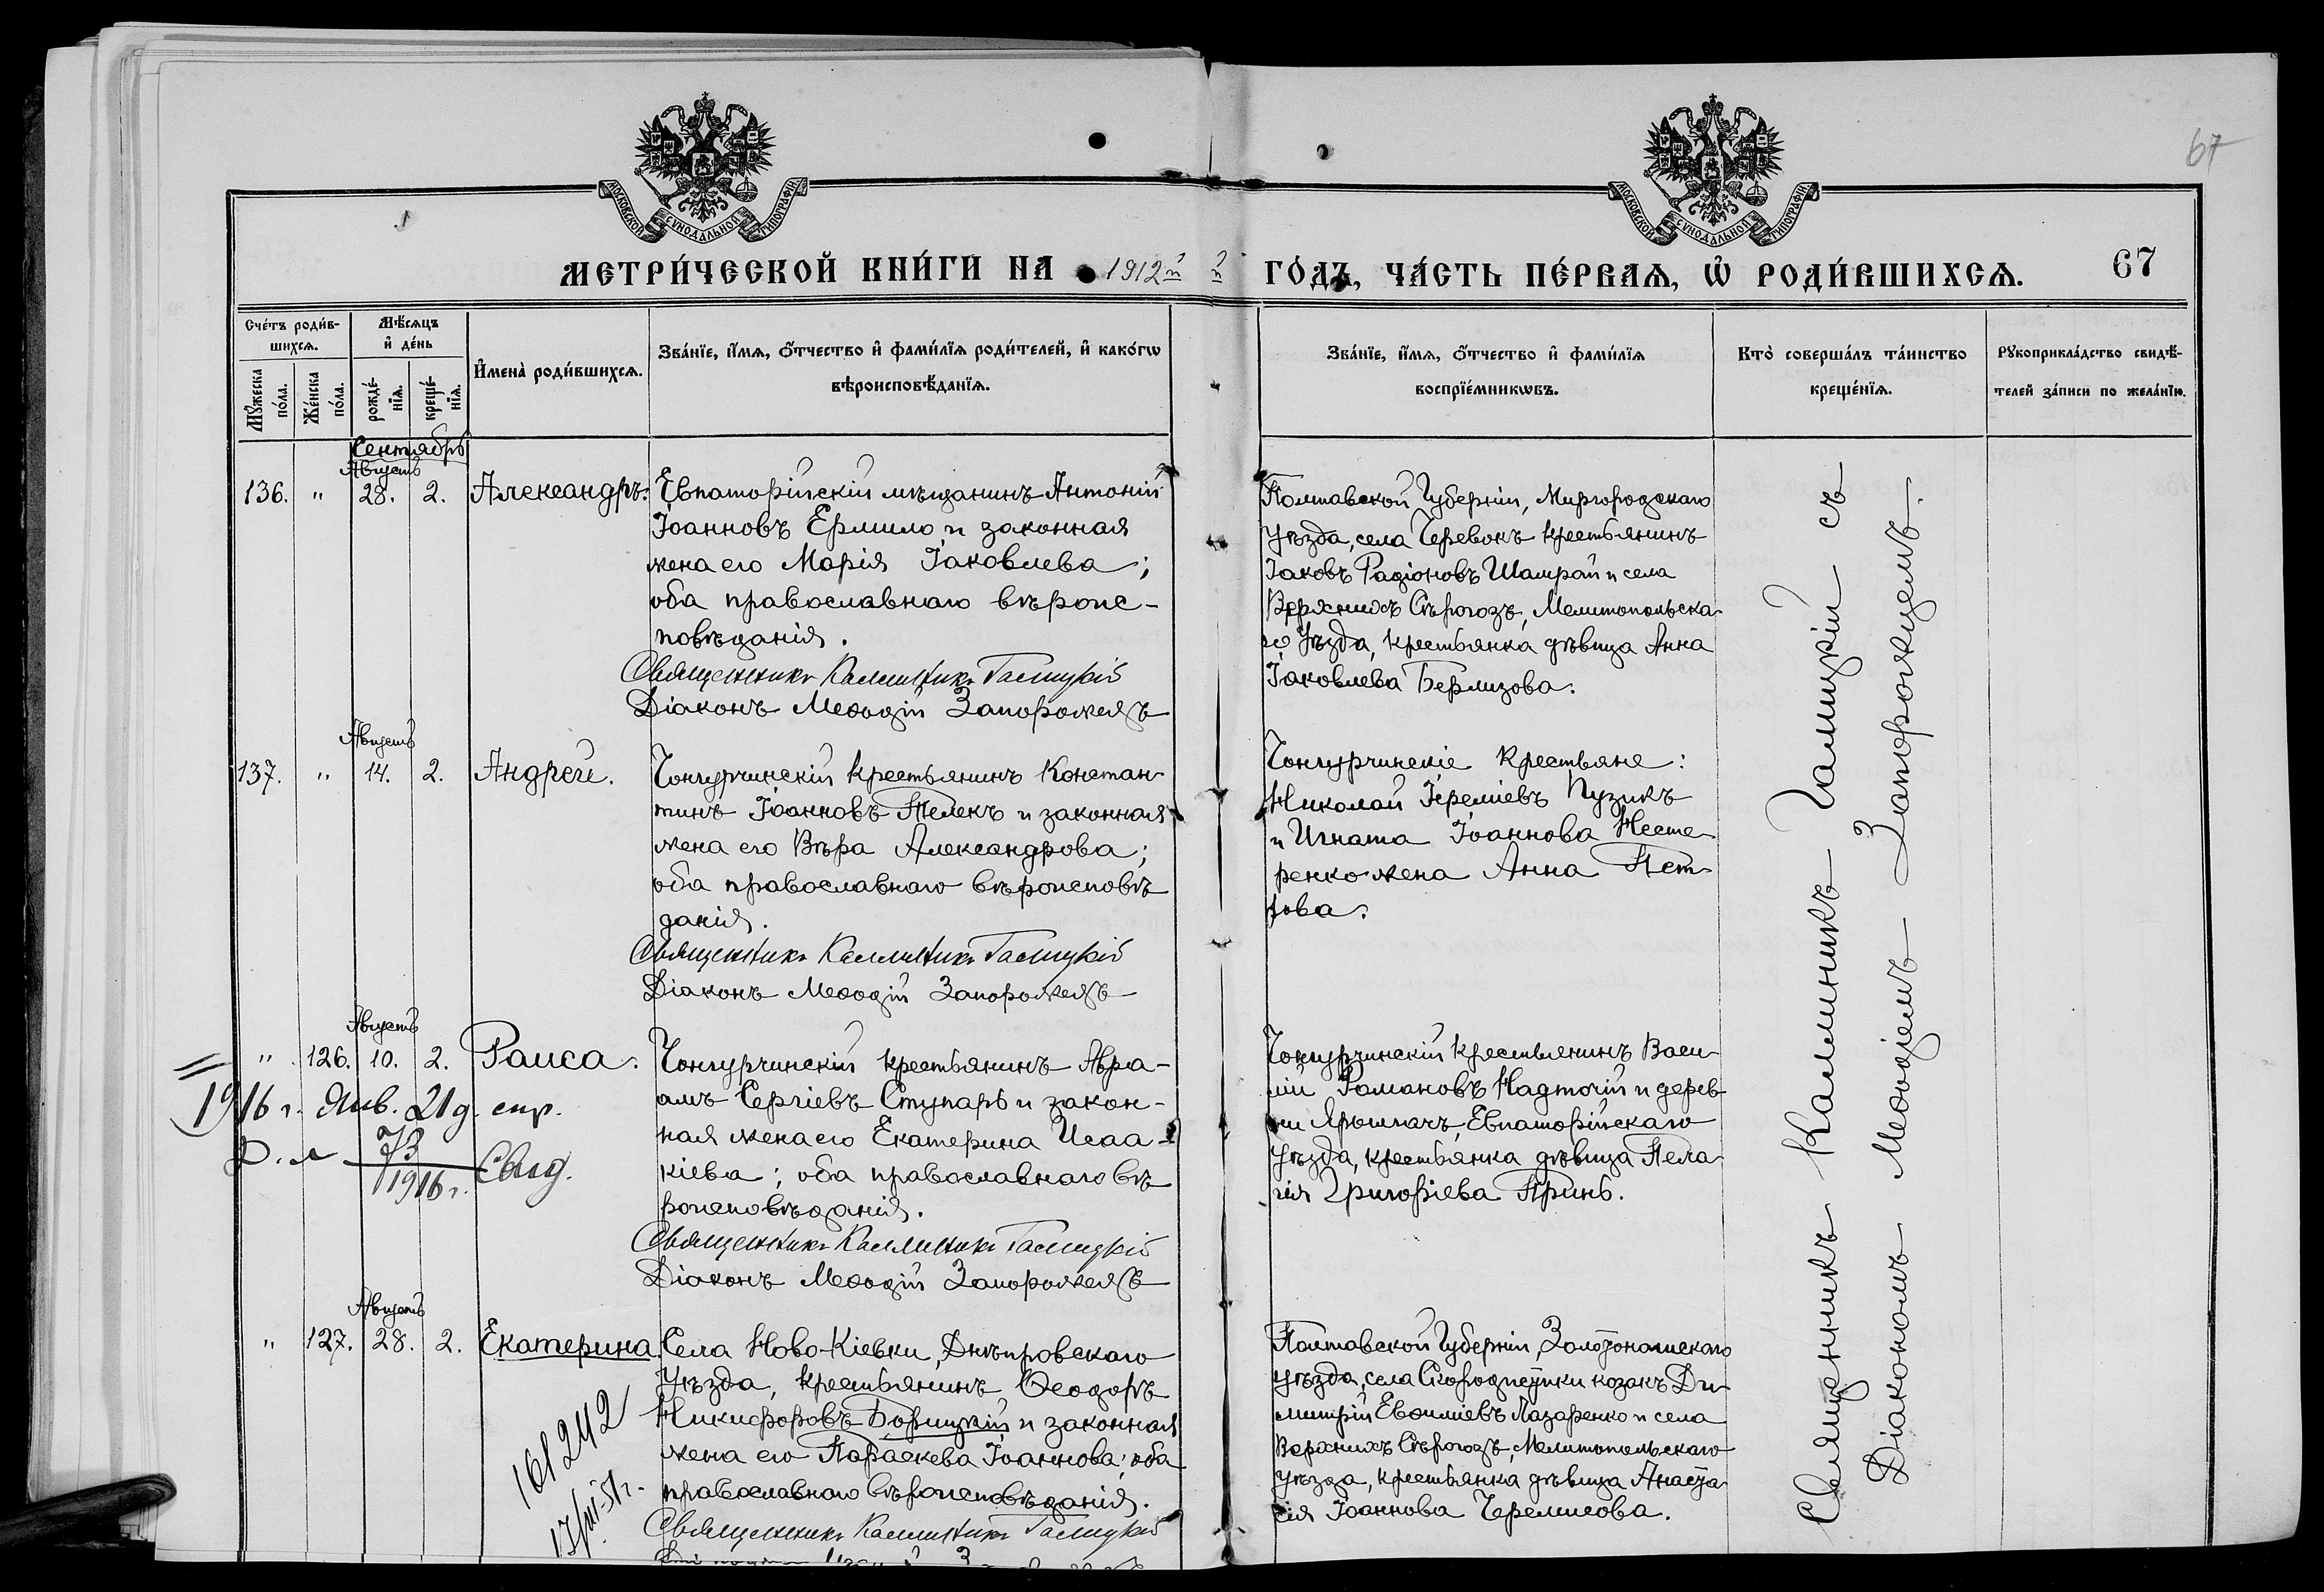 67
МОСКОВСКОЙ СѴНОДАЛЬНОЙ ТИПОГРАФІИ
МОСКОВСКОЙ СѴНОДАЛЬНОЙ ТИПОГРАФІИ
МЕТРИ́ЧЕСКОЙ КНИ́ГИ НА 1912й й ГО́ДЪ, ЧА́СТЬ ПЕ́РВАѦ, Ѡ҆ РОДИ́ВШИХСѦ. 67
Сче́тъ роди́в-
шихсѧ.
Мꙋ́жеска
по́ла.
Же́нска
по́ла.
Мѣ́сѧцъ
и҆ де́нь
рожде́-
нїѧ.
креще́-
нїѧ.
И҆мена̀ роди́вшихсѧ.
Зва́нїе, и҆́мѧ, ѻ҆́тчество и҆ фами́лїѧ роди́телей, и҆ како́гѡ
вѣроисповѣ́данїѧ.
Зва́нїе, и҆́мѧ, ѻ҆́тчество и҆ фами́лїѧ
воспрїе́мникѡвъ.
Кто̀ соверша́лъ та́инство
креще́нїѧ.
Рꙋкоприкла́дство свидѣ́-
телей за́писи по жела́нїю.
Сентябрь
Августъ
136. " 28. 2. Александръ.
Евпаторійскій мѣщанинъ Антоній
Іоанновъ Ермило и законная
жена его Марія Іаковлева;
оба православнаго вѣроис-
повѣданія.
Священникъ Каллиникъ Галицкій
Діаконъ Меѳодій Запорожецъ
Полтавской Губерніи, Миргородскаго
уѣзда, села Черевокъ крестьянинъ
Іаковъ Радіоновъ Шамрай и села
Верхнихъ Сѣрогозъ, Мелитопольска-
го уѣзда, крестьянка дѣвица Анна
Іаковлева Берлизова.
Августъ
137. " 14. 2. Андрей.
Чонгурчинскій крестьянинъ Констан-
тинъ Іоанновъ Пелехъ и законная
жена его Вѣра Александрова;
оба православнаго вѣроисповѣ
данія.
Священникъ Каллиникъ Галицкій
Діаконъ Меѳодій Запорожецъ
Чонгурчинскіе крестьяне:
Николай Іереміевъ Пузикъ
и Игната Іоаннова Несте-
ренко жена Анна Пет-
рова.
Августъ
" 126. 10. 2. Раиса.
1916 г. Янв. 21 д. спр.
73
1916 г. Свид.
Чонгурчинскій крестьянинъ Авра-
амъ Сергіевъ Ступарь и закон-
ная жена его Екатерина Исаа-
кіева; оба православнаго вѣ
роисповѣданія.
Священникъ Каллиникъ Галицкій
Діаконъ Меѳодій Запорожецъ
Чонгурчинскій крестьянинъ Васи-
лій Романовъ Надточій и дерев-
ни Ярылгачъ, Евпаторійскаго
уѣзда, крестьянка дѣвица Пела-
гія Григорьева Принь.
Августъ
" 127. 28. 2. Екатерина.
161242
Села Ново-Кіевки, Днѣпровскаго
уѣзда, крестьянинъ Ѳеодоръ
Никифоровъ Борицкій и законная
жена его Параскева Іоаннова; оба
православнаго вѣроисповѣданія.
Священникъ Каллиникъ Галицкій
Полтавской Губерніи, Золотоношскаго
уѣзда, села Скородистики козакъ Ди-
митрій Евѳиміевъ Лазаренко и села
Верхнихъ Сѣрогозъ, Мелитопольскаго
уѣзда, крестьянка дѣвица Анаста-
сія Іоаннова Черемисова.
Священникъ Каллиникъ Галицкій съ
Діакономъ Меѳодіемъ Запорожцемъ.